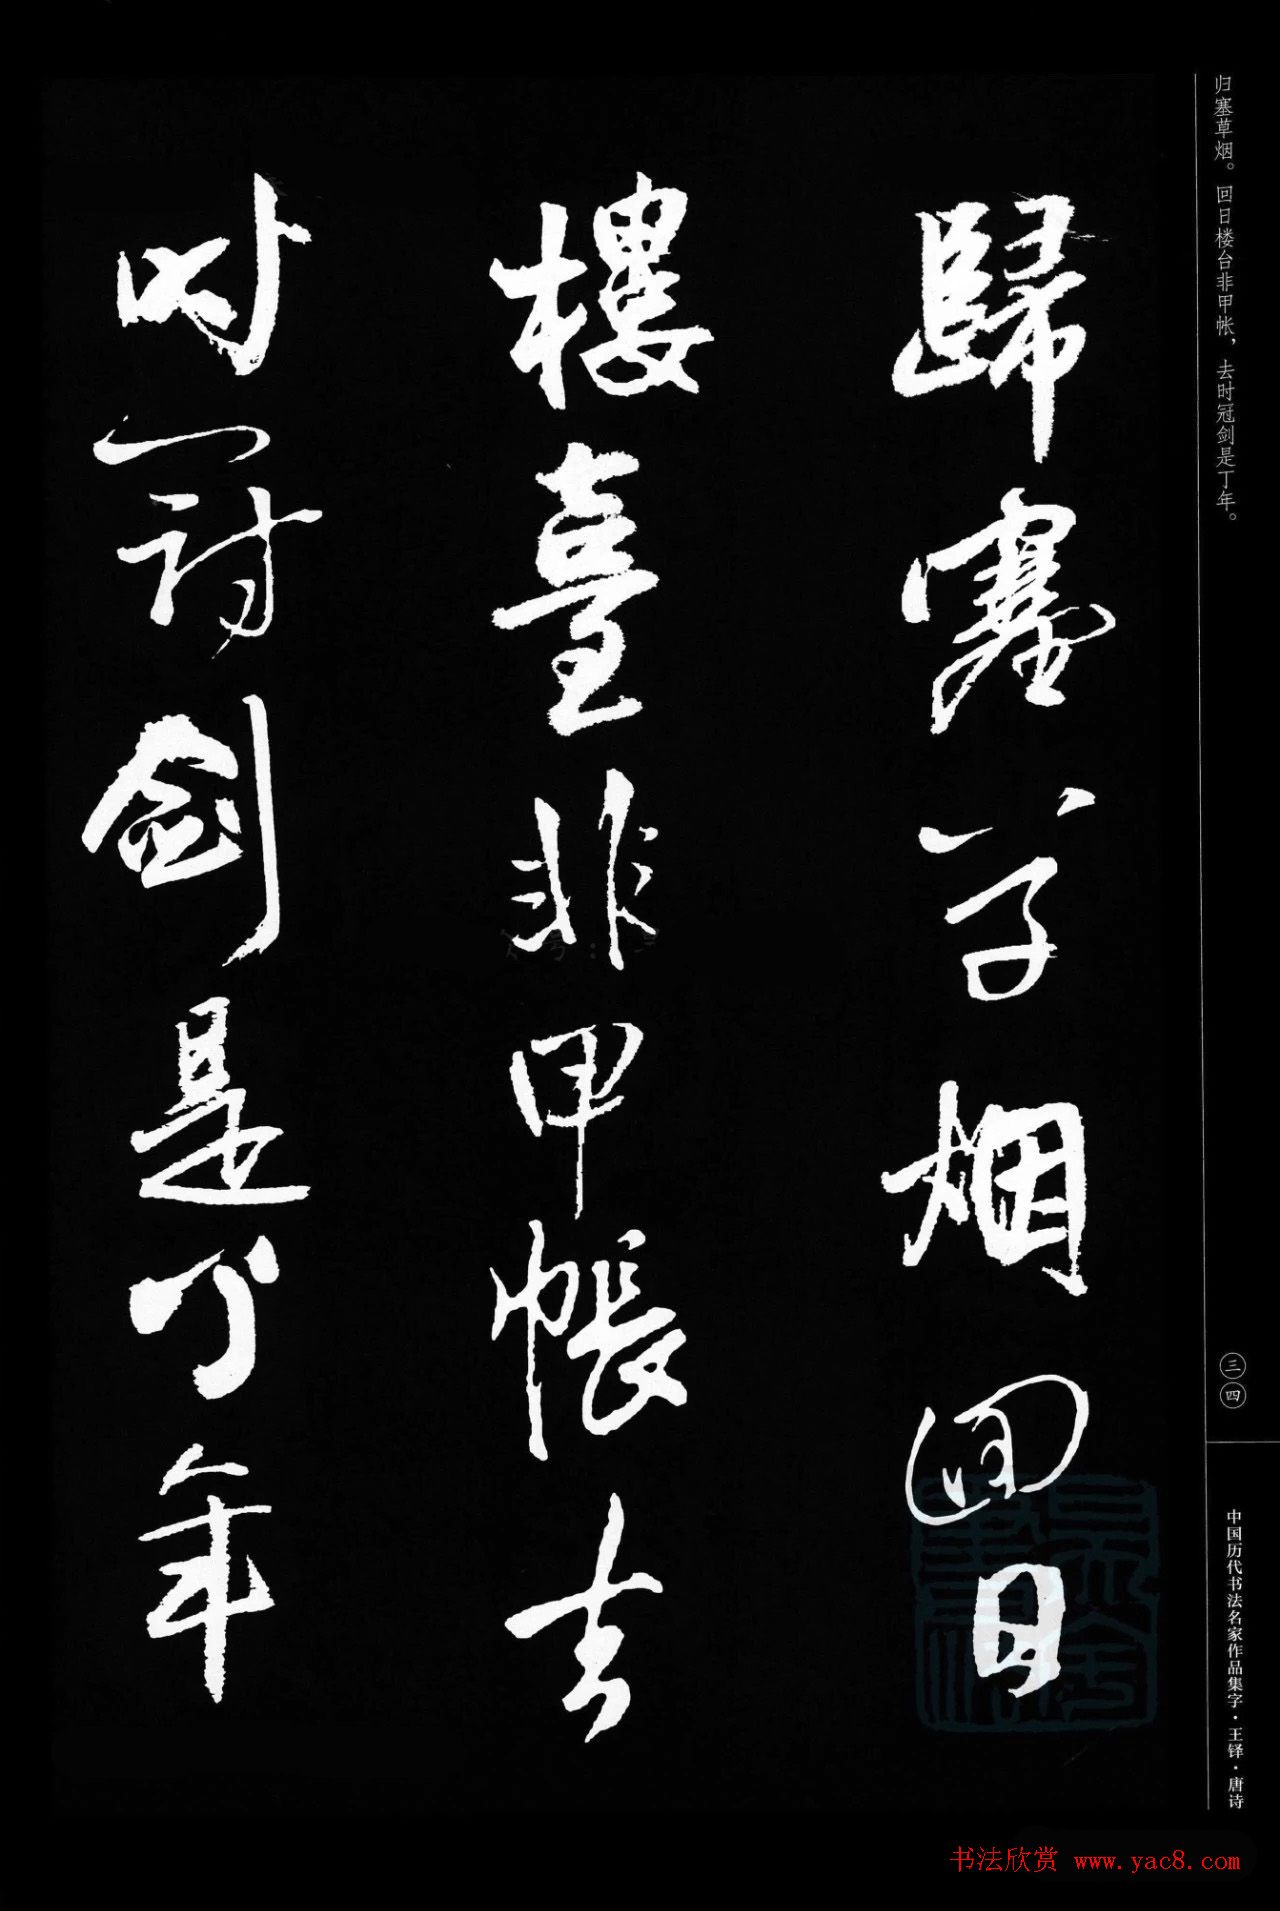 归塞草烟。回日楼台非甲帐，去时冠剑是丁年。
歸塞草烟回日
樓臺非甲帳去
时冠剑是丁年
三四
中国历代书法名家作品集字·王铎·唐诗
书法欣赏 www.yac8.com